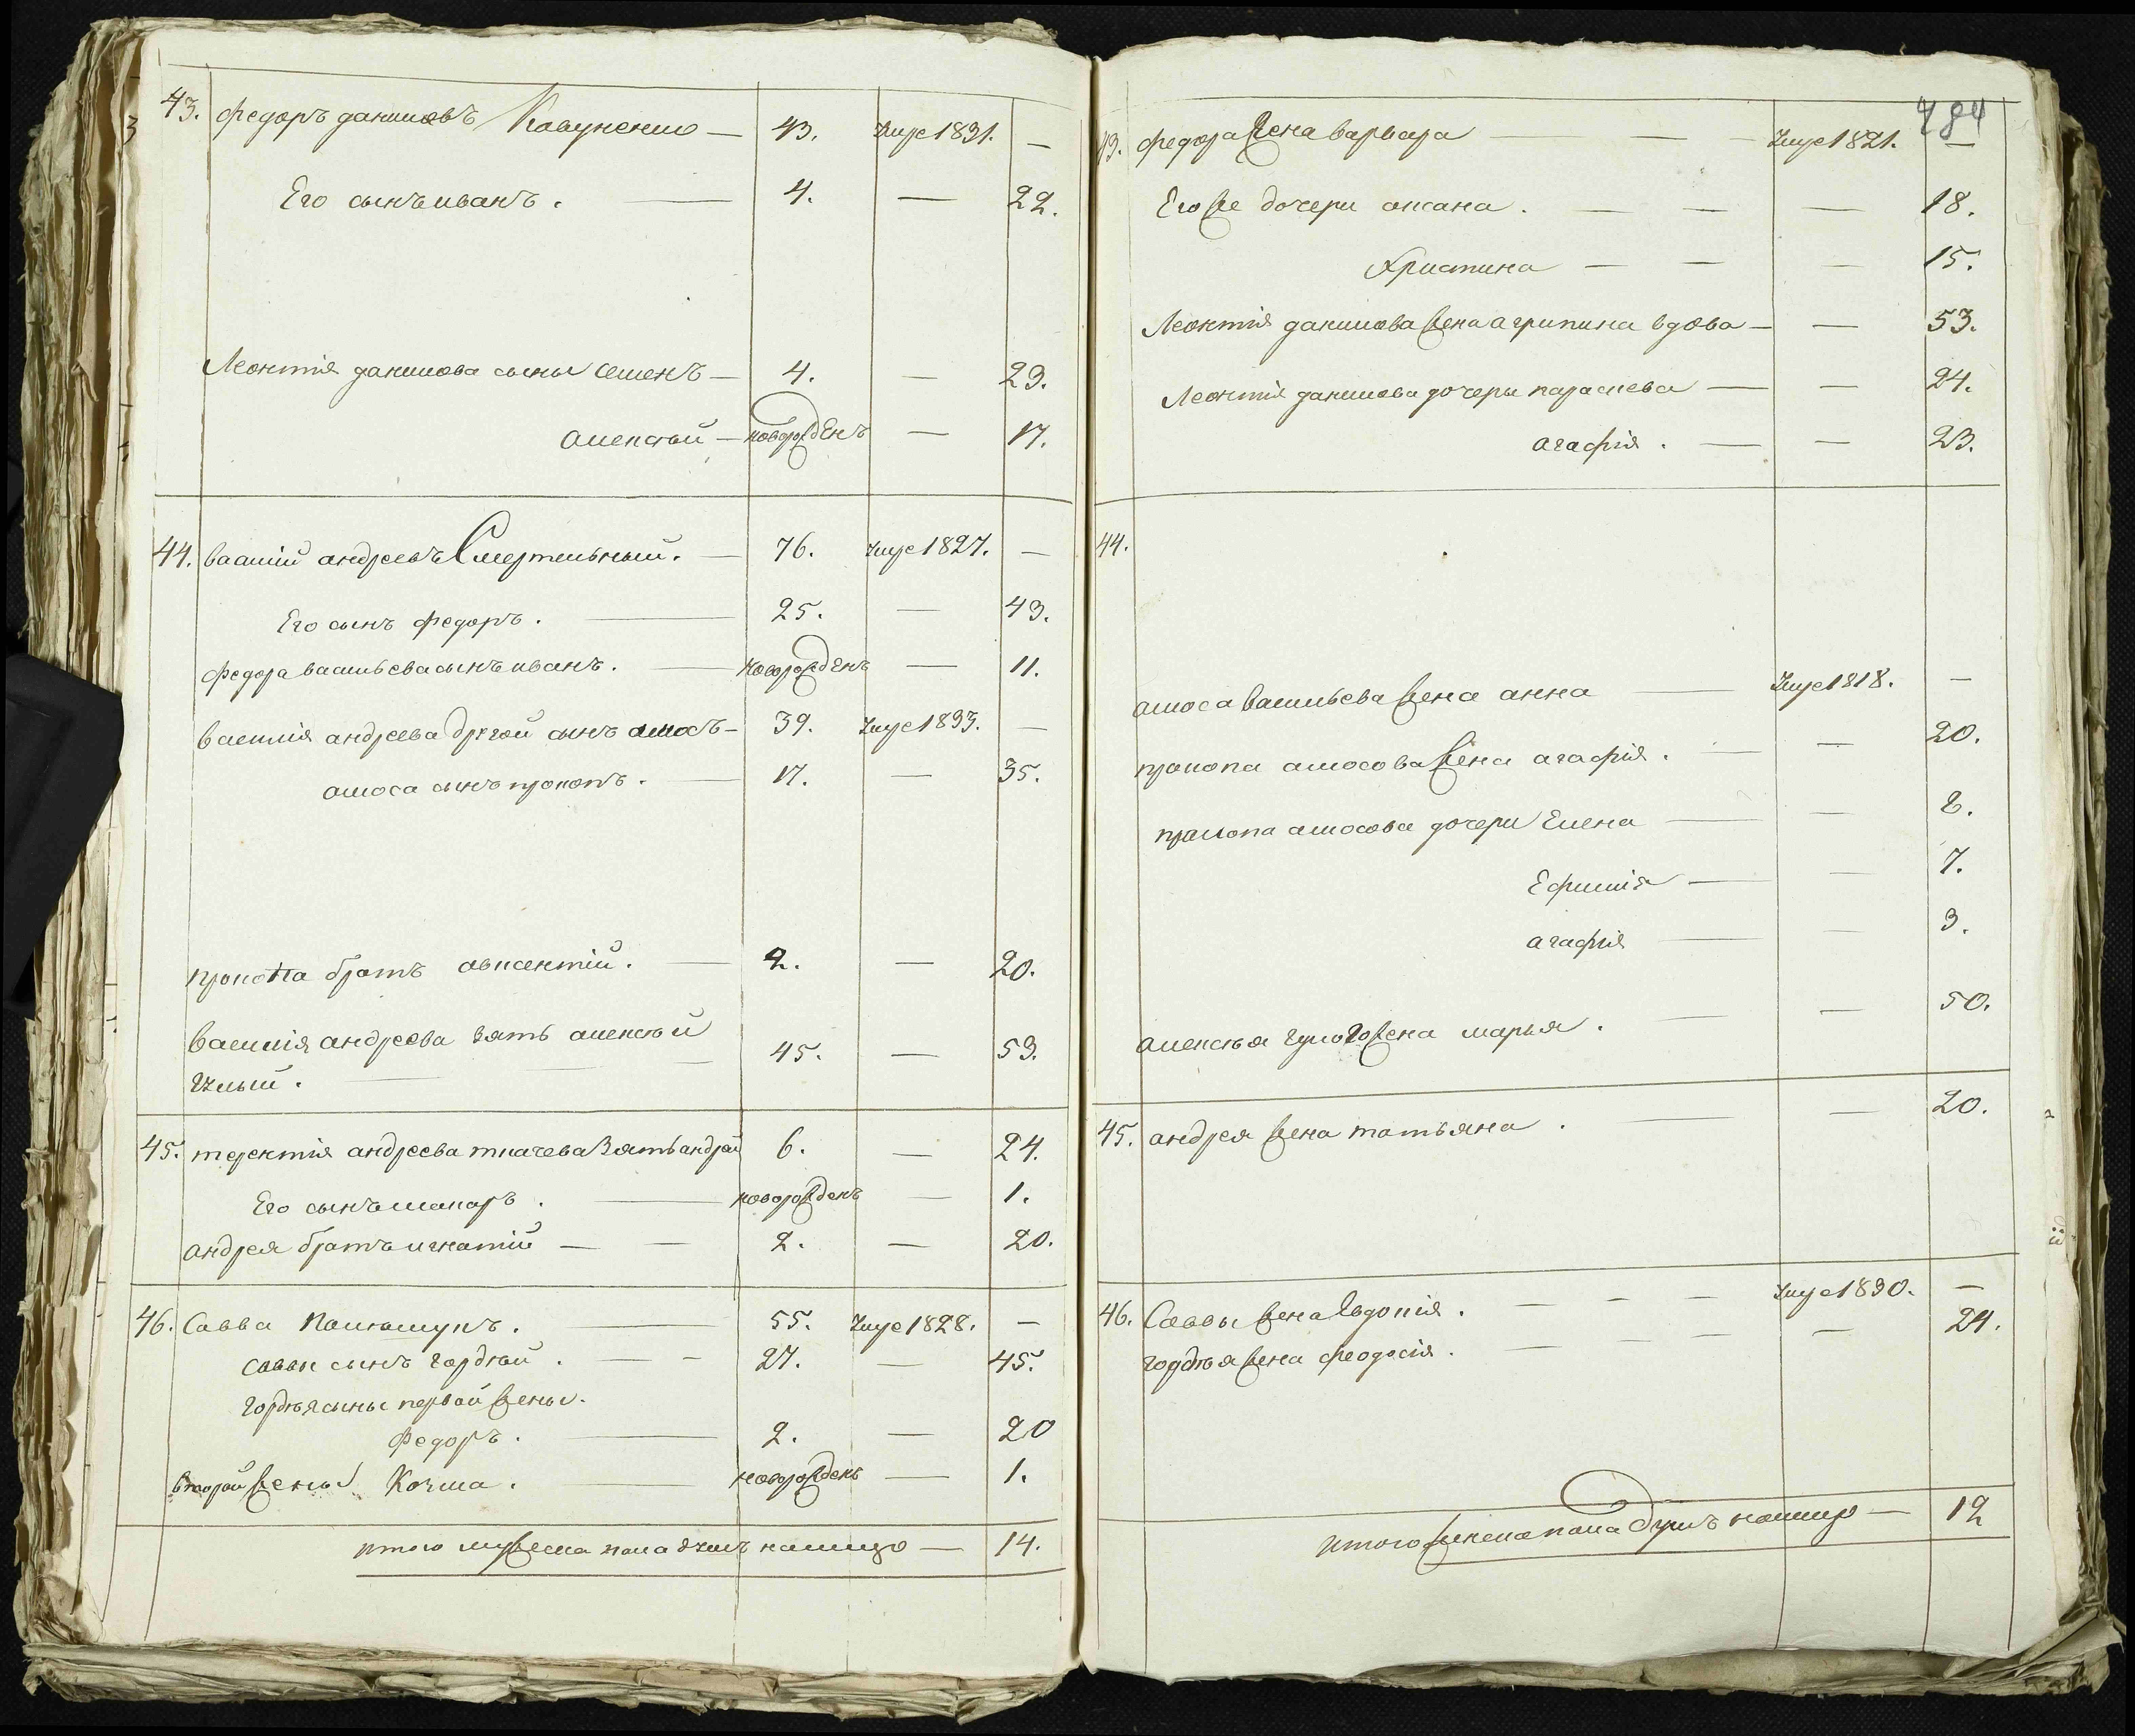 43. Федоръ даниловъ Ковуненко — 43. Умре 1831. —
Его сынъ иванъ. — 4. — 22.
Леонтія данилова сыны Семенъ — 4. — 23.
алексѣй — новорожденъ — 17.
44. василій андреевъ Смертельный. — 76. Умре 1827. —
Его сынъ федоръ. — 25. — 43.
федора васильева сынъ иванъ. — новорожденъ — 11.
василія андреева другой сынъ амосъ — 39. Умре 1833. —
амоса сынъ прокопъ. — 17. — 35.
прокопа братъ авксентій. — 2. — 20.
василія андреева зять алексѣй
45. — 53.
45. терентія андреева ткачева Зять андрей 6. — 24.
Его сынъ макаръ. — новорожденъ — 1.
андрея братъ игнатій — — 2. — 20.
46. Савва 55. Умре 1828. —
саввы сынъ гордѣй. — — 27. — 45.
гордѣя сыны первой жены.
федоръ. — 2. — 20
второй жены Козма. — новорожденъ — 1.
итого мужеска пола душъ налицо — 14.
484
43. федора жена варвара — — — Умре 1821. —
Его же дочери оксана. — — — 18.
Христина — — — 15.
Леонтія данилова жена агрипина вдова — — 53.
Леонтія данилова дочери параскева — — 24.
агафія. — — 23.
44.
амоса васильева жена анна — Умре 1818. —
прокопа амосова жена агафія. — — 20.
прокопа амосова дочери Елена — — 8.
Ефимія — — 7.
агафія — — 3.
алексѣя жена марья. — — 50.
45. андрея жена татьяна. — — 20.
46. Саввы жена Евдокія. — — — Умре 1830. —
гордѣя жена феодосія. — — — — 24.
итого женска пола душъ налицо — 12